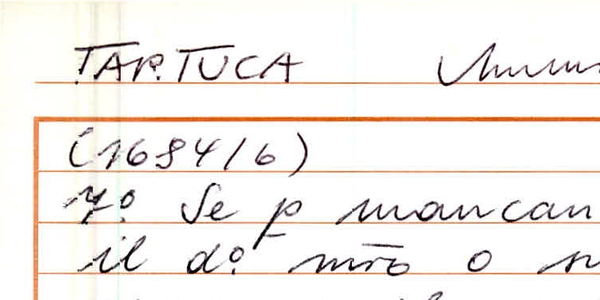 TARTUCA
(1684/6)
7º Se p mancan
il dº mro o